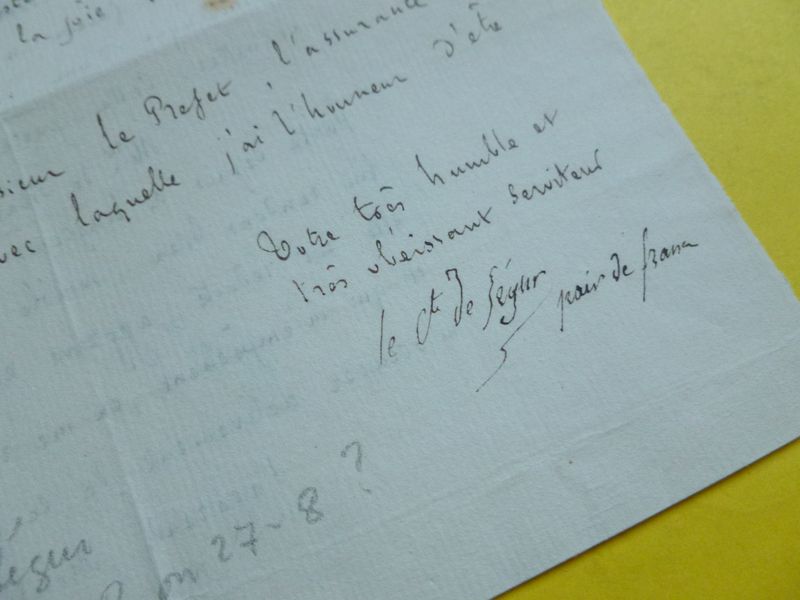 la joie
sieur le Prefet, l'assurance
vec laquelle j'ai l'honneur d'être
Votre très humble et
très obéissant serviteur
le Cte de Ségur
pair de france
Ségur
on 27-8?